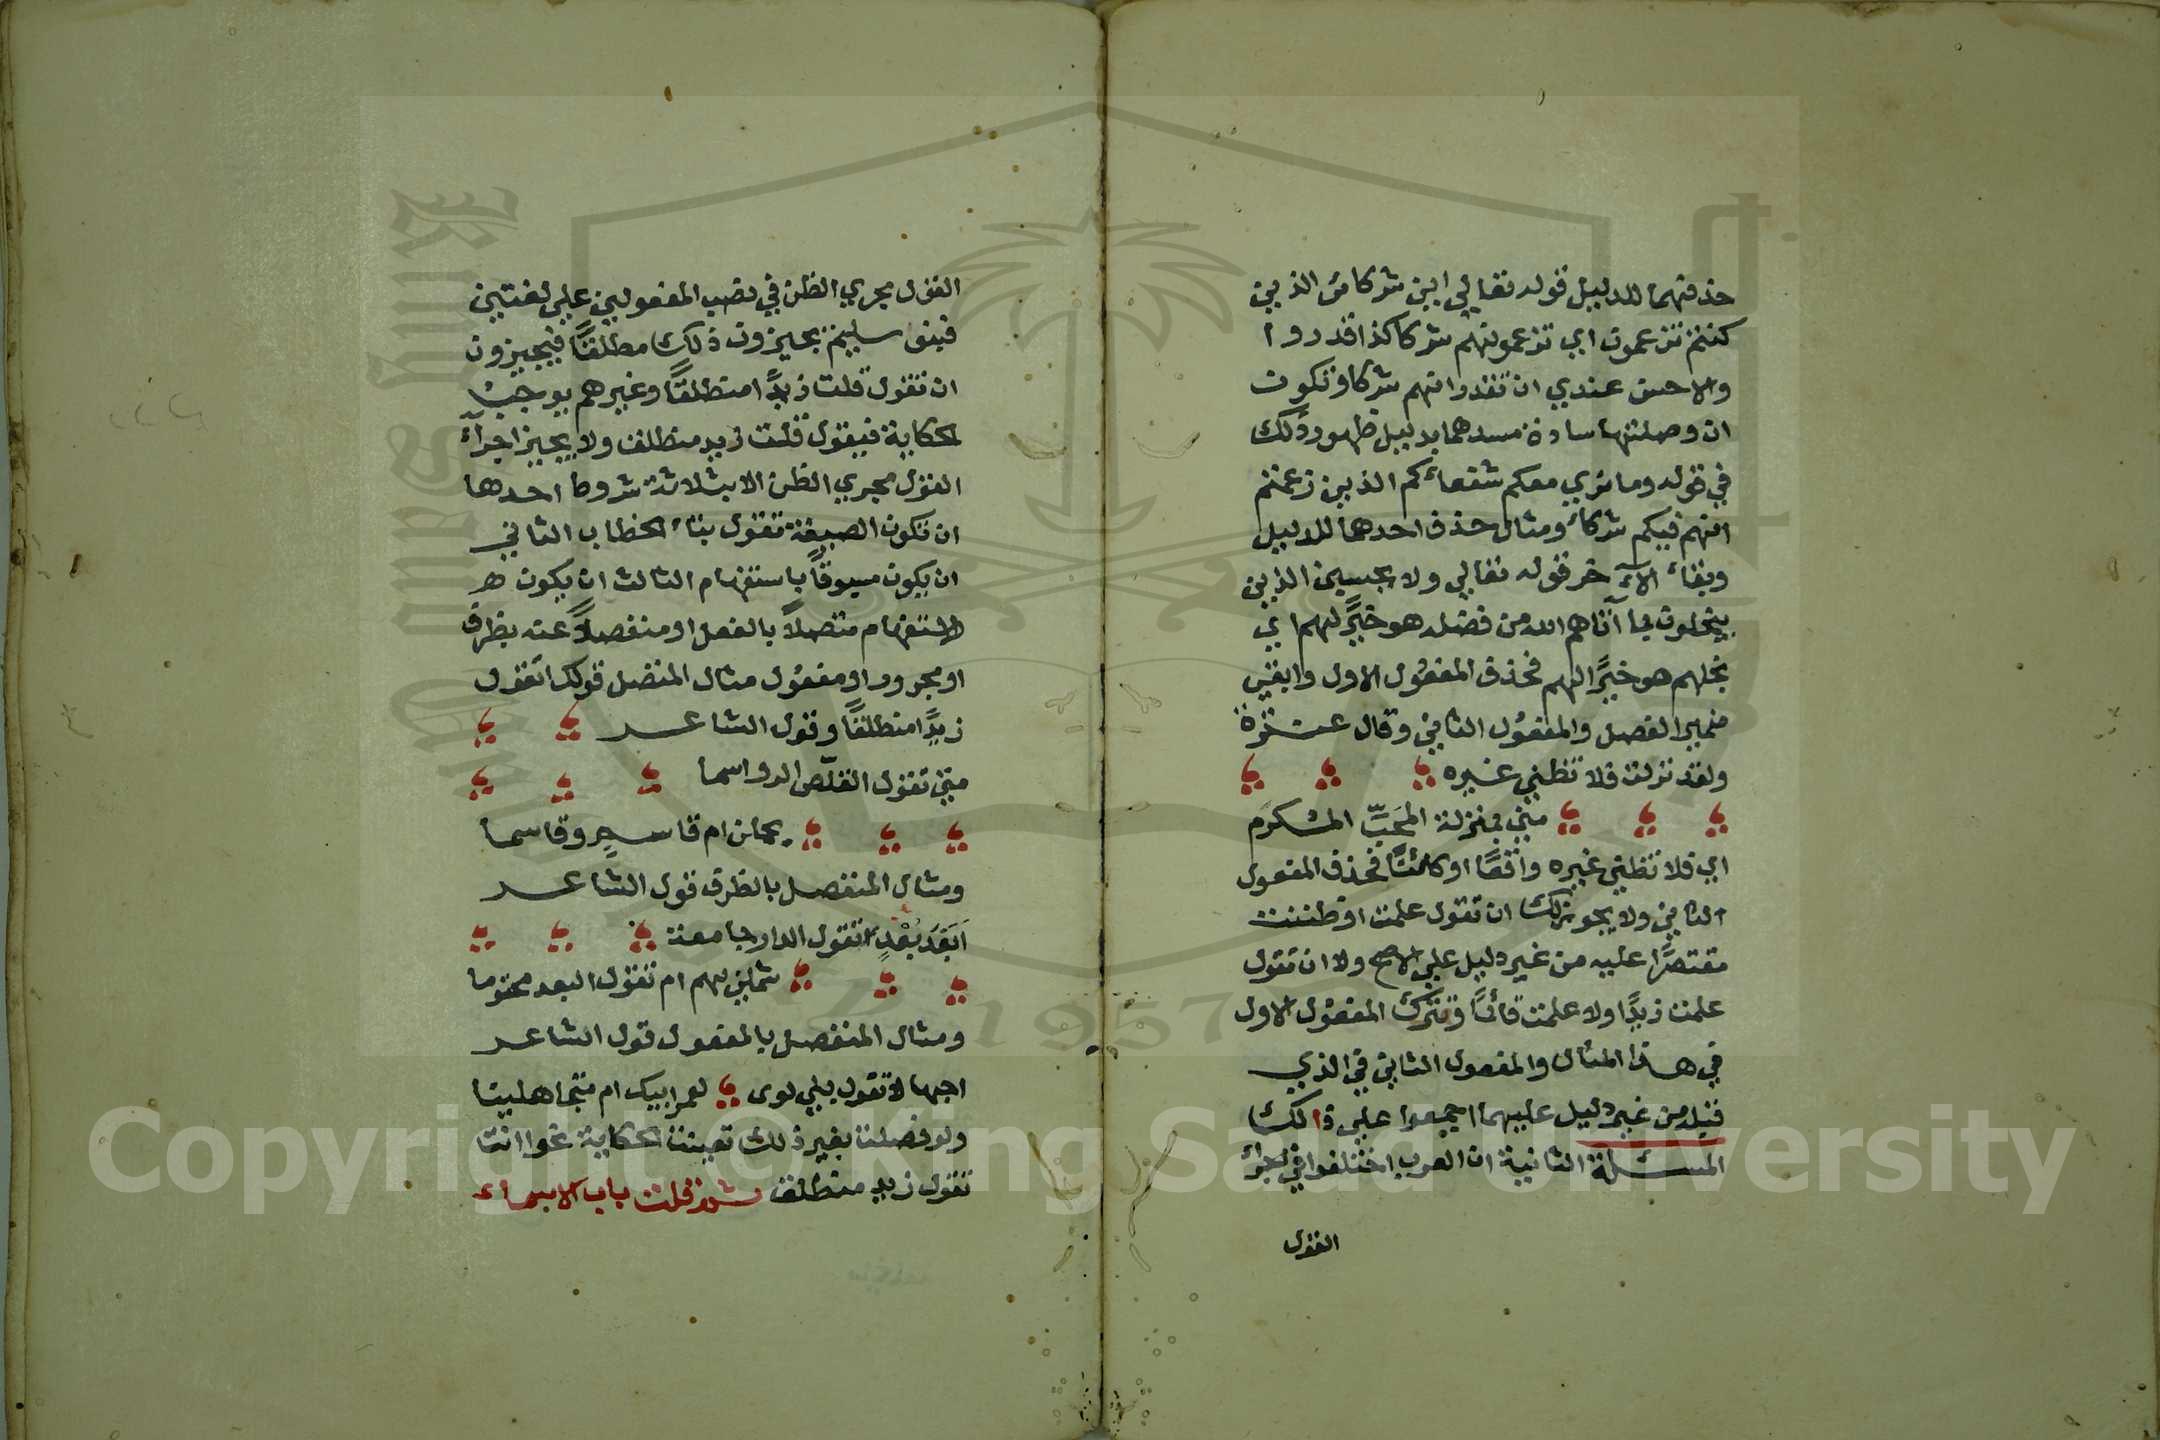 حذفتهما للدليل قوله تعالي اين شركائ الذين
كنتم تزعمون اي تزعمونهم شركا كذا قدروا
والاحسن عندي ان تقدر انهم شركا وتكون
ان وصلتها سادة مسدهما بدليل ظهور ذلك
في قوله وما نري معكم شفعائكم الذين زعمتم
انهم فيكم شركاء ومثال حذف احدهما للدليل
وبقاء الآخر قوله تعالي ولا يحسبن الذين
يبخلون بما آتاهم الله من فضله هو خيرًا لهم اي
بخلهم هو خيرًا لهم فحذف المفعول الاول وابقي
ضمير الفصل والمفعول الثاني وقال عنترة
ولقد نزلت فلا تظني غيره
مني بمنزلة المحَبّ المكرم
اي فلا تظني غيره واقعًا او كائنًا فحذف المفعول
الثاني ولا يجوز لك ان تقول علمت او ظننت
مقتصرًا عليه من غير دليل علي الاصح ولا ان تقول
علمت زيدًا ولا علمت قائمًا وتترك المفعول الاول
في هذا المثال والمفعول الثاني في الذي
قبله من غير دليل عليهما اجمعوا علي ذالك
المسئلة الثانية ان العرب اختلفوا في اجراء
القول
القول مجري الظن في نصب المفعولين علي لغتين
فبنو سليم يجيزون ذلك مطلقًا فيجيزون
ان تقول قلت زيدًا منطلقًا وغيرهم يوجب
الحكاية فيقول قلت زيد منطلق ولا يجيز اجراء
القول مجري الظن الا بثلاثة شروط احدها
ان تكون الصيغة تقول بتاء الخطاب الثاني
ان يكون مسبوقًا باستفهام الثالث ان يكون
الاستفهام متصلاً بالفعل او منفصلاً عنه بظرف
او مجرور او مفعول مثال المتصل قولك اتقول
زيدًا منطلقًا وقول الشاعر
متي تقول القلّص الرواسما
يحملن ام قاسم وقاسما
ومثال المنفصل بالظرف قول الشاعر
اَبَعْدَ بُعْدٍ تقول الدار جامعة
شملي بهم ام تقول البعد محتوما
ومثال المنفصل بالمفعول قول الشاعر
اجهالا تقول بني لوى لعمر ابيك ام متجاهلينا
ولو فصلت بغير ذلك تعينت الحكاية نحو اانت
تقول زيد منطلق ثم قلت باب الاسماء
Copyright © King Saud University
1957